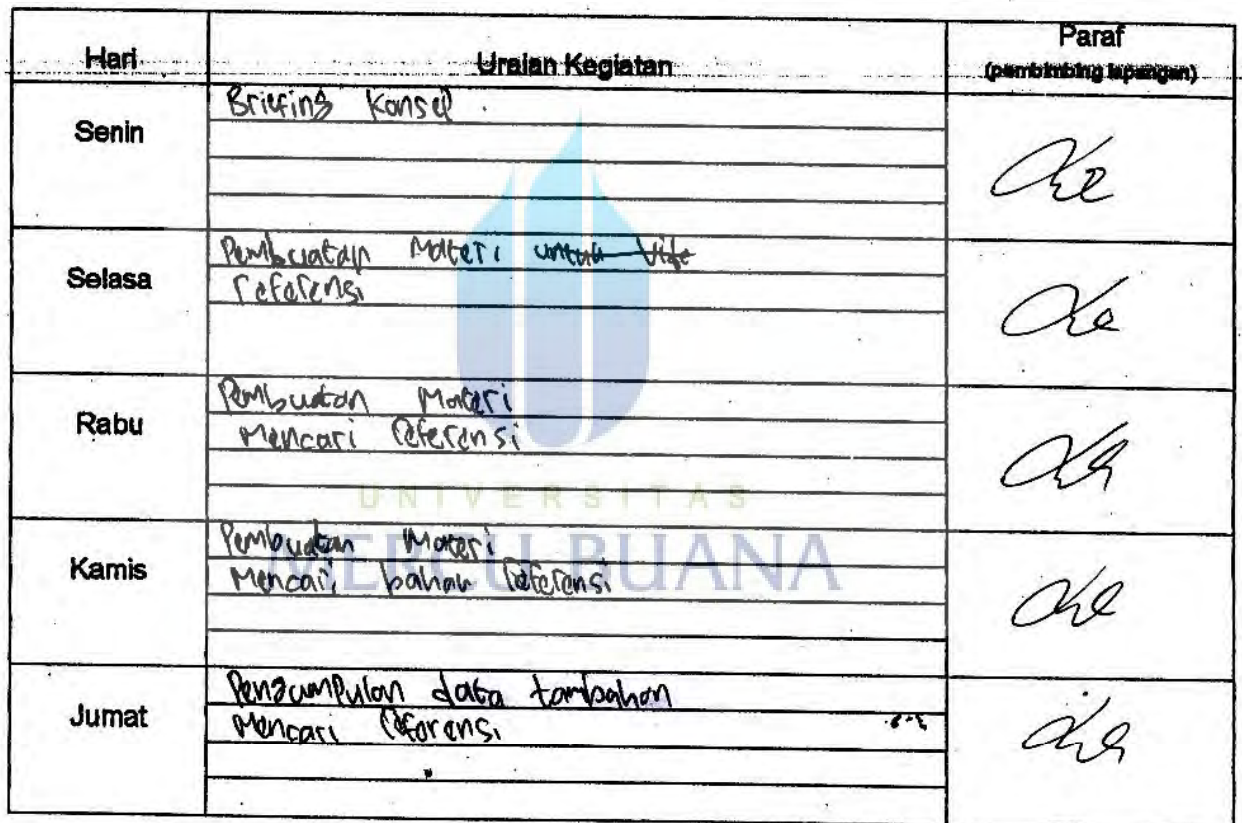 Hari Uraian Kegiatan Paraf
(pembimbing lapangan)
Senin
Briefing Konsep
Selasa
Pembuatan Materi untuk
referensi
Rabu
Pembuatan Materi
Mencari referensi
UNIVERSITAS
Kamis
Pembuatan Materi
MERCU BUANA
Mencari bahan referensi
Jumat
Pengumpulan data tambahan
Mencari referensi